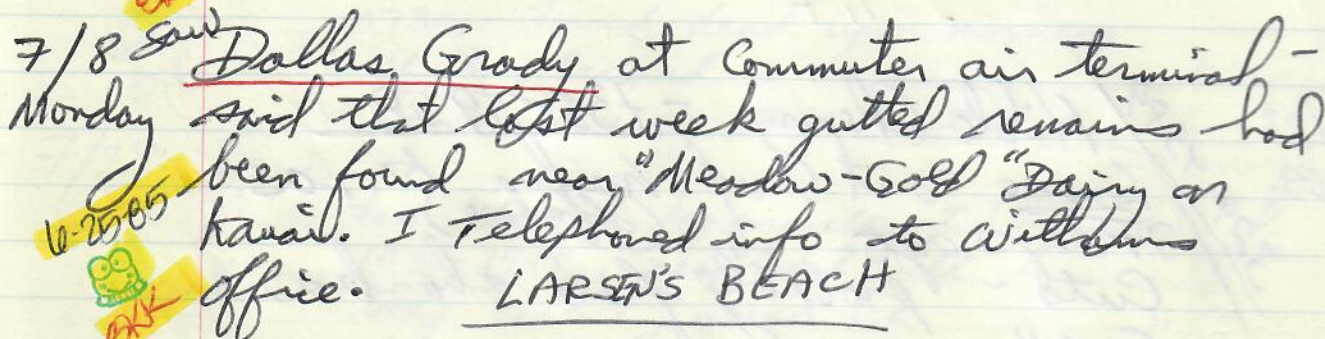 7/8 saw Dallas Grady at Commuter air terminal -
Monday said that last week gutted remains had
been found near "Meadow-Gold" Dairy on
6-25-85
Kauai. I Telephoned info to
office. LARSEN'S BEACH